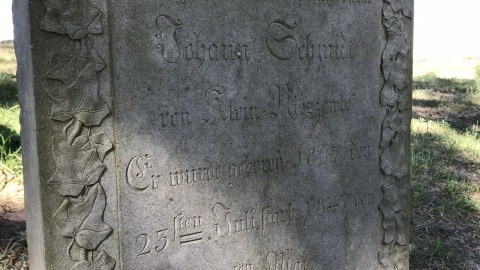 Johann Schmidt
von Klein
Er wurde geboren 1807 den
23sten Juli, starb 1847 den
ten Mai